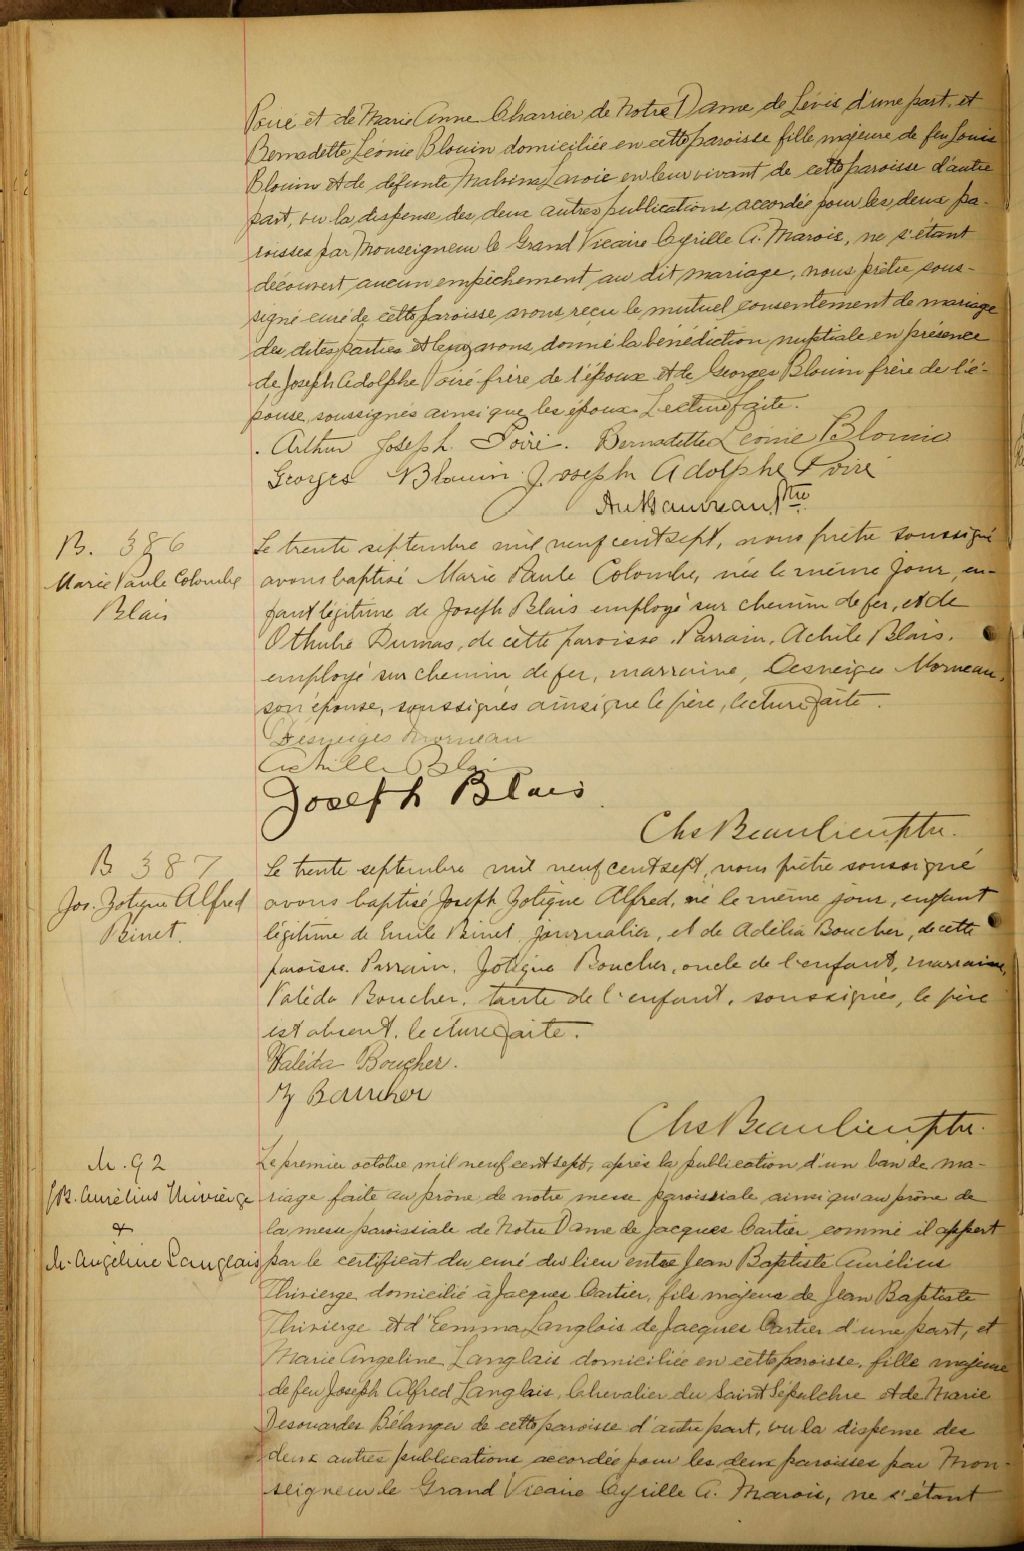 Poiré et de Marie Anne Charrier de Notre Dame de Lévis d'une part, et
Bernadette Léonie Blouin domiciliée en cette paroisse fille majeure de feu Louis
Blouin et de défunte Malvina Lavoie en leur vivant de cette paroisse d'autre
part, vu la dispense des deux autres publications accordée pour les deux pa-
roisses par Monseigneur le Grand Vicaire Cyrille A. Marois, ne s'étant
découvert aucun empêchement au dit mariage, nous prêtre sous-
signé curé de cette paroisse avons reçu le mutuel consentement de mariage
des dites parties et leur avons donné la bénédiction nuptiale en présence
de Joseph Adolphe Poiré frère de l'époux et de Georges Blouin frère de l'é-
pouse, soussignés ainsi que les époux. Lecture faite.
Arthur Joseph Poiré. Bernadette Léonie Blouin
Georges Blouin Joseph Adolphe Poiré
Ptre
B. 386
Marie Paule Colombe
Blais
Le trente septembre mil neuf cent sept, nous prêtre soussigné
avons baptisé Marie Paule Colombe, née le même jour, en-
fant légitime de Joseph Blais employé sur chemin de fer, et de
Dumas, de cette paroisse. Parrain, Achile Blais,
employé sur chemin de fer, marraine, Desneiges Morneau,
son épouse, soussignés ainsi que le père, lecture faite.
Désneiges Morneau
Achille Blais
Joseph Blais
Chs Beaulieu ptre.
B 387
Jos. Zotique Alfred
Binet.
Le trente septembre mil neuf cent sept, nous prêtre soussigné
avons baptisé Joseph Zotique Alfred, né le même jour, enfant
légitime de Emile Binet journalier, et de Adélia Boucher, de cette
paroisse. Parrain, Zotique Boucher, oncle de l'enfant, marraine,
Valéda Boucher, tante de l'enfant, soussignés, le père
est absent, lecture faite.
Valéda Boucher.
Z Boucher
Chs Beaulieu ptre.
M. 92
J. Bt. Aurélius Thivierge
&
M. Angéline Langlais
Le premier octobre mil neuf cent sept, après la publication d'un ban de ma-
riage faite au prône de notre messe paroissiale ainsi qu'au prône de
la messe paroissiale de Notre Dame de Jacques Cartier comme il appert
par le certificat du curé du lieu entre Jean Baptiste Aurélius
Thivierge domicilié à Jacques Cartier, fils majeur de Jean Baptiste
Thivierge et d'Emma Langlois de Jacques Cartier d'une part, et
Marie Angeline Langlais domiciliée en cette paroisse, fille majeure
de feu Joseph Alfred Langlais, Chevalier du Saint Sépulchre et de Marie
Desouardes Bélanger de cette paroisse d'autre part, vu la dispense des
deux autres publications accordée pour les deux paroisses par Mon-
seigneur le Grand Vicaire Cyrille A. Marois, ne s'étant